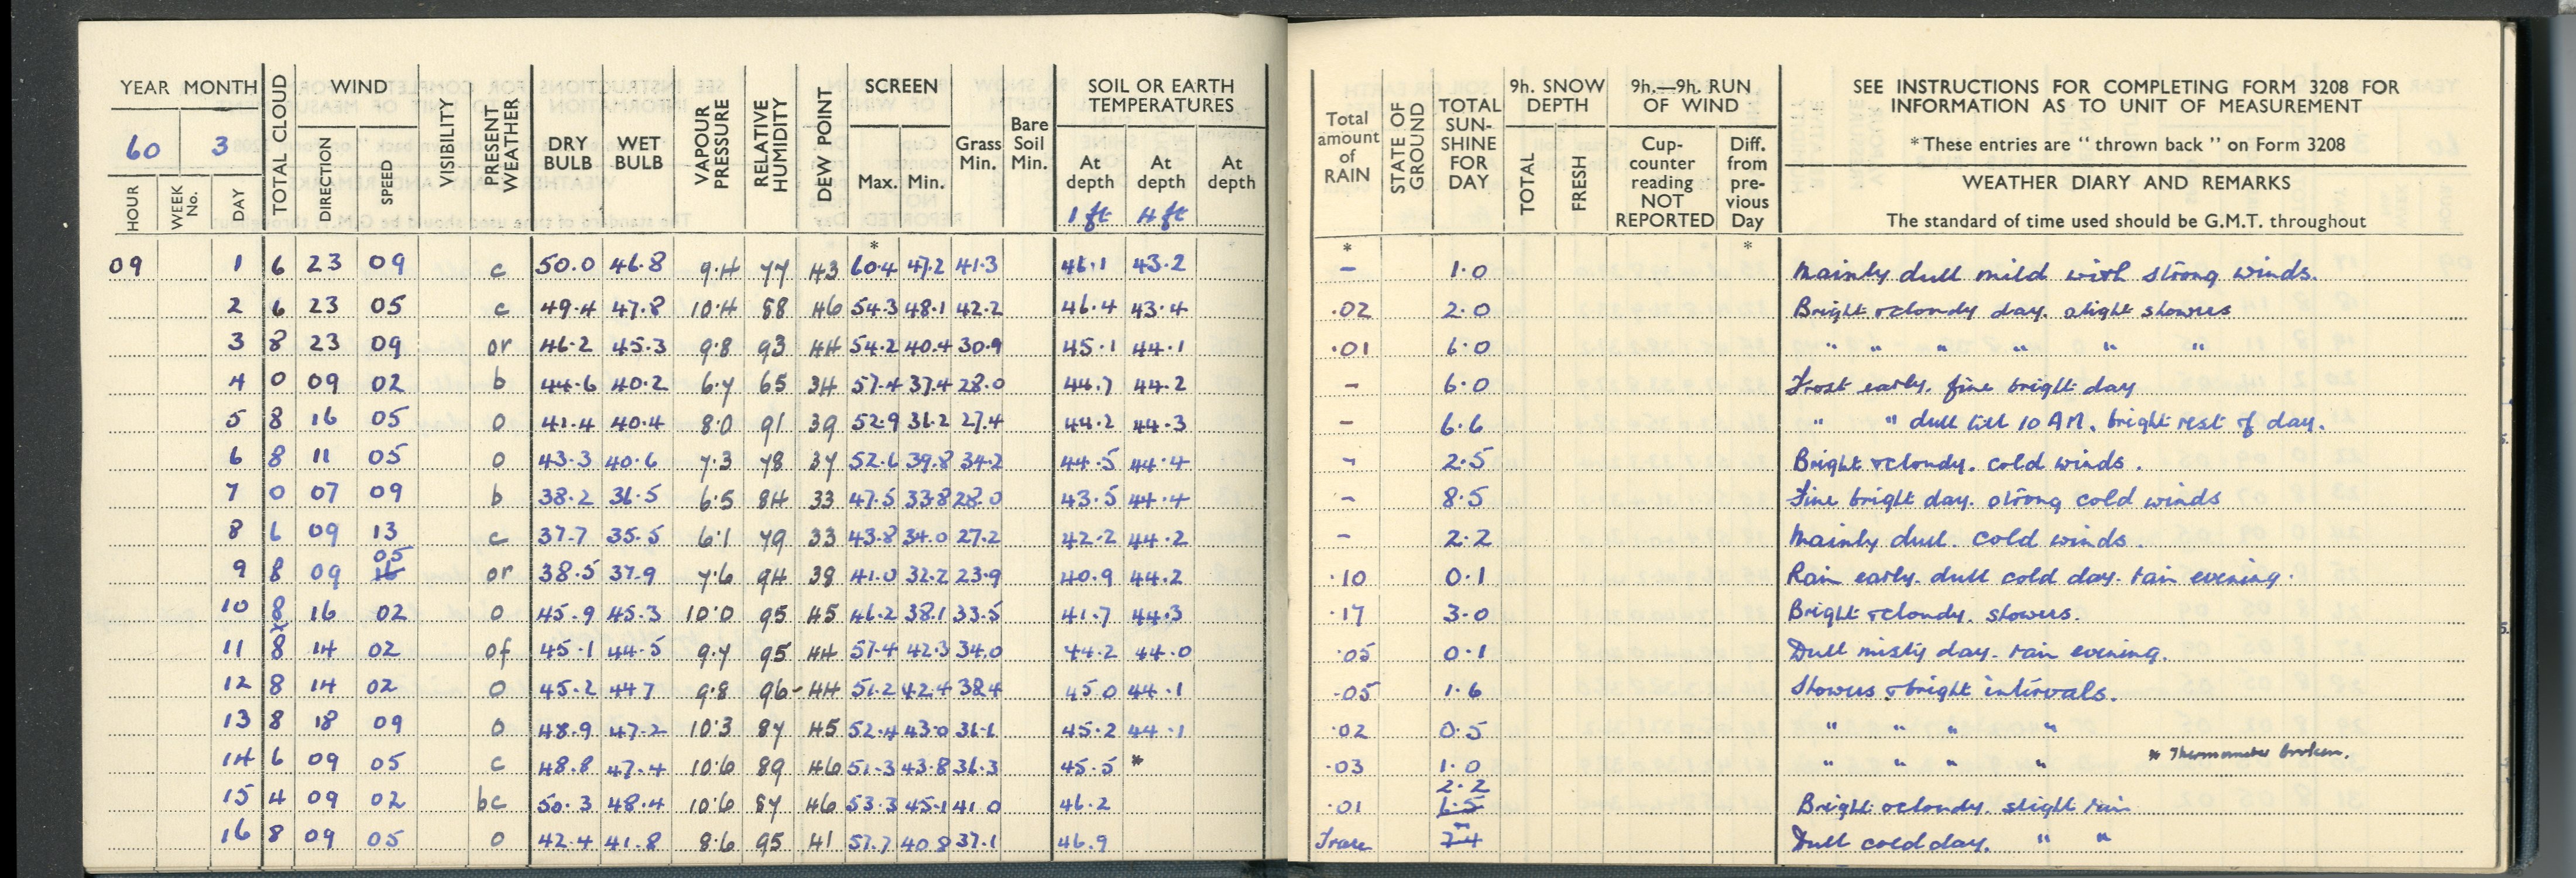 YEAR MONTH TOTAL CLOUD WIND VISIBILITY PRESENT WEATHER DRY BULB WET BULB VAPOUR PRESSURE RELATIVE HUMIDITY DEW POINT SCREEN Grass Min. Bare Soil Min. SOIL OR EARTH TEMPERATURES
60 3
HOUR WEEK No. DAY DIRECTION SPEED Max. Min. At depth At depth At depth
1 ft 4 ft
Total amount of RAIN STATE OF GROUND TOTAL SUN-SHINE FOR DAY 9h. SNOW DEPTH TOTAL FRESH 9h.—9h. RUN OF WIND Cup-counter reading NOT REPORTED Diff. from pre-vious Day
SEE INSTRUCTIONS FOR COMPLETING FORM 3208 FOR
INFORMATION AS TO UNIT OF MEASUREMENT
* These entries are "thrown back" on Form 3208
WEATHER DIARY AND REMARKS
The standard of time used should be G.M.T. throughout
* * *
09 1 6 23 09 c 50.0 46.8 9.4 77 43 60.4 47.2 41.3 46.1 43.2 – 1.0 Mainly dull mild with strong winds.
2 6 23 05 c 49.4 47.8 10.4 88 46 54.3 48.1 42.2 46.4 43.4 .02 2.0 Bright & cloudy day. slight showers
3 8 23 09 or 46.2 45.3 9.8 93 44 54.2 40.4 30.9 45.1 44.1 .01 6.0 " " " " " "
4 0 09 02 b 44.6 40.2 6.7 65 34 57.4 37.4 28.0 44.7 44.2 – 6.0 Frost early. fine bright day
5 8 16 05 o 41.4 40.4 8.0 91 39 52.9 31.2 27.4 44.2 44.3 – 6.6 " " dull till 10 AM. bright rest of day.
6 8 11 05 o 43.3 40.6 7.3 78 37 52.6 39.8 34.2 44.5 44.4 – 2.5 Bright & cloudy. cold winds.
7 0 07 09 b 38.2 36.5 6.5 84 33 47.5 33.8 28.0 43.5 44.4 – 8.5 Fine bright day. strong cold winds
8 6 09 13 c 37.7 35.5 6.1 79 33 43.8 34.0 27.2 42.2 44.2 – 2.2 Mainly dull. cold winds.
9 8 09 05 or 38.5 37.9 7.6 94 38 41.0 32.2 23.9 40.9 44.2 .10 0.1 Rain early. dull cold day. rain evening.
10 8 16 02 o 45.9 45.3 10.0 95 45 46.2 38.1 33.5 41.7 44.3 .17 3.0 Bright & cloudy. showers.
11 8 14 02 of 45.1 44.5 9.7 95 44 57.4 42.3 34.0 44.2 44.0 .05 0.1 Dull misty day. rain evening.
12 8 14 02 o 45.2 44.7 9.8 96 44 51.2 42.4 38.4 45.0 44.1 .05 1.6 Showers & bright intervals.
13 8 18 09 o 48.9 47.2 10.3 87 45 52.4 43.0 36.1 45.2 44.1 .02 0.5 " " " "
14 6 09 05 c 48.8 47.4 10.6 89 46 51.3 43.8 36.3 45.5 * .03 1.0 " " " " * Thermometer broken.
15 4 09 02 bc 50.3 48.4 10.6 87 46 53.3 45.1 41.0 46.2 .01 2.2 Bright & cloudy. slight rain
16 8 09 05 o 42.4 41.8 8.6 95 41 57.7 40.8 37.1 46.9 Trace Dull cold day. " "